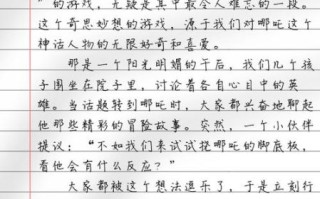 "的游戏，无疑是其中最令人难忘的一段。
这个奇思妙想的游戏，源于我们对哪吒这个
神话人物的无限好奇和喜爱。
那是一个阳光明媚的午后，我们几个孩
子围坐在院子里，讨论着各自心目中的英
雄。当话题转到哪吒时，大家都兴奋地聊起
他那些精彩的冒险故事。突然，一个小伙伴
提议："不如我们来试试挠哪吒的脚底板，
看他会有什么反应？"
大家都被这个想法逗乐了，于是立刻行